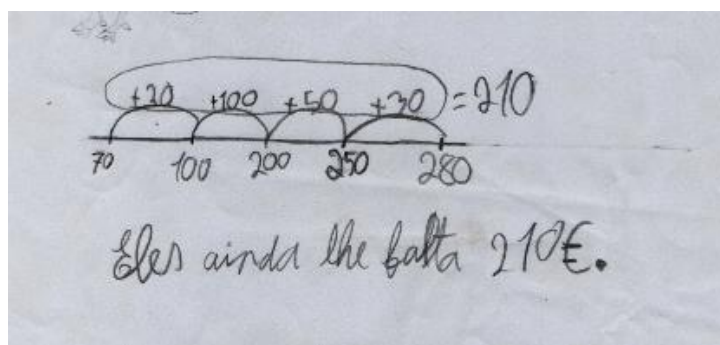 +30 +100 +50 +30 = 210
70 100 200 250 280
Eles ainda lhe falta 210€.